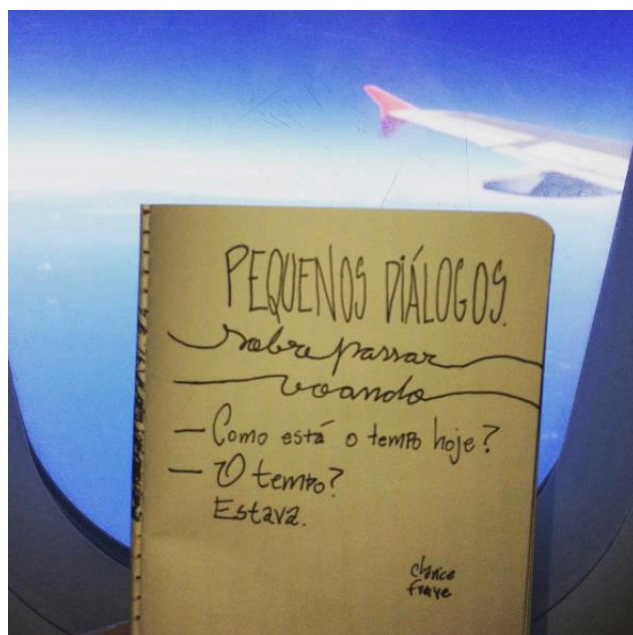 PEQUENOS DIÁLOGOS.
sobre passar
voando
— Como está o tempo hoje?
— O tempo?
Estava.
clarice
freire